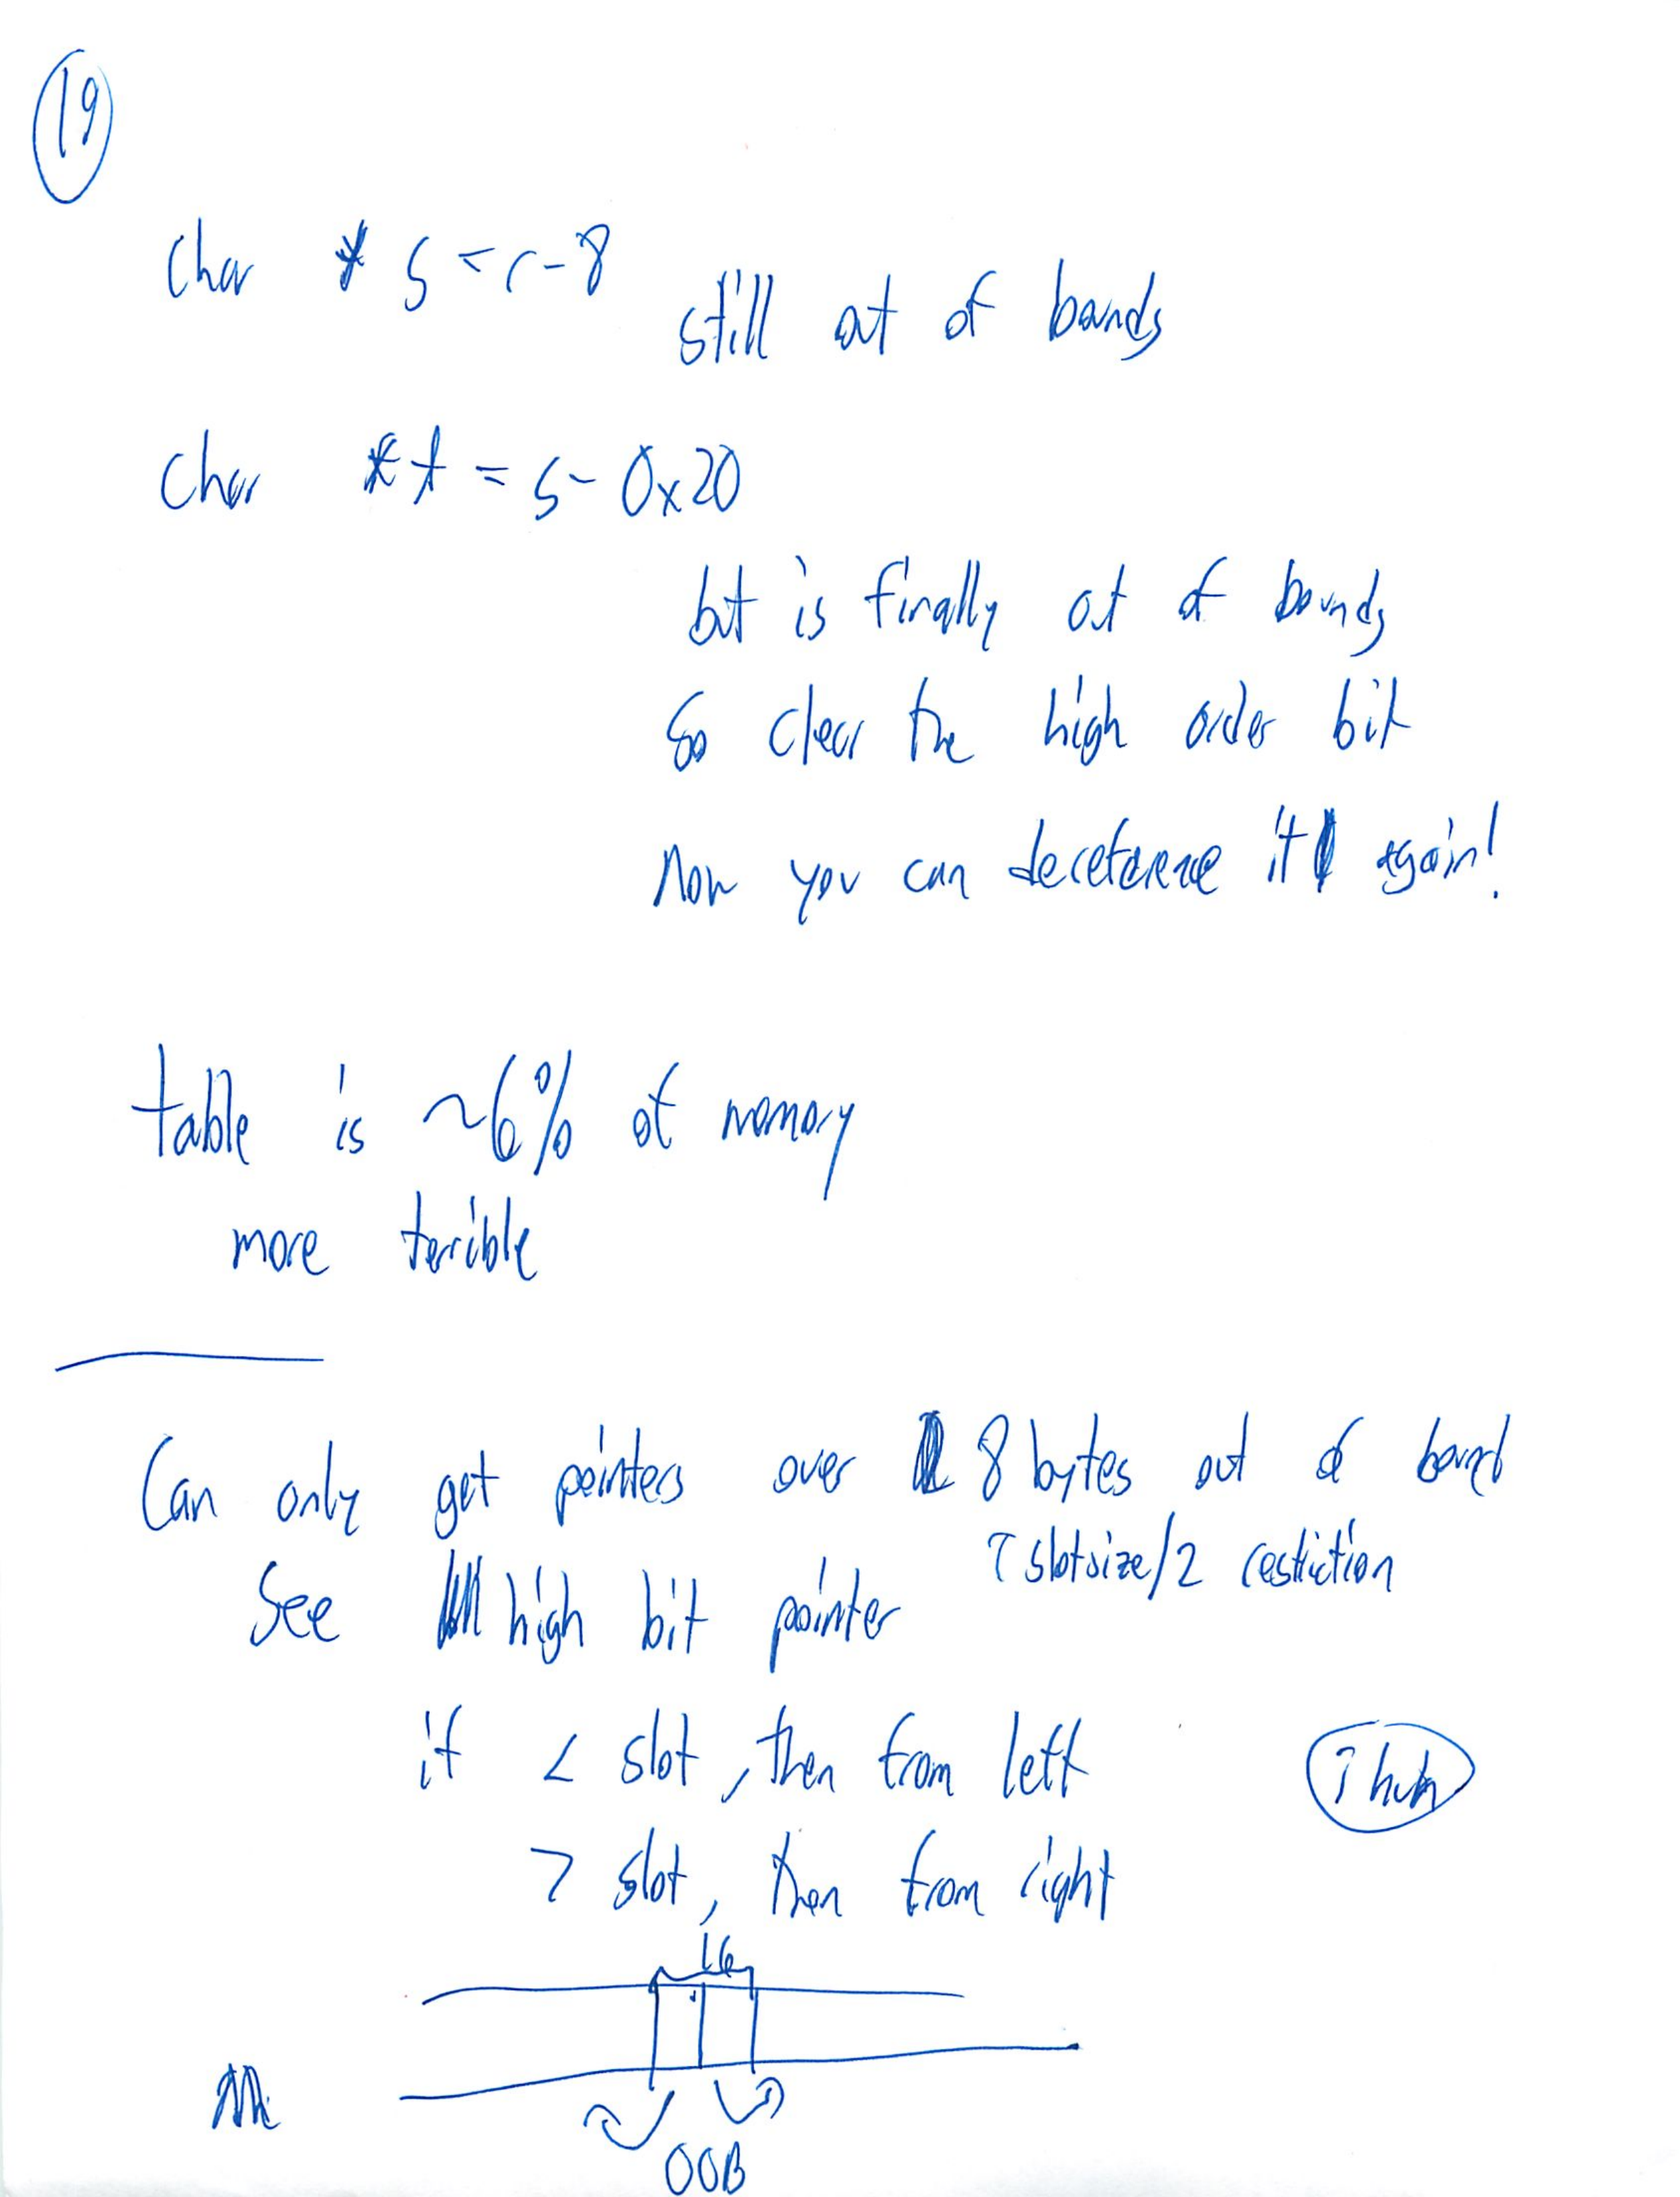 19
Char * s = r - 8
still out of bounds
Char * t = s - 0x20
but is finally out of bounds
So clear the high order bit
Now you can dereference it again!
table is ~6% of memory
more terrible
Can only get pointers over 8 bytes out of bound
↑ slotsize/2 restriction
See high bit pointer
if < slot, then from left
? huh
> slot, then from right
16
OOB